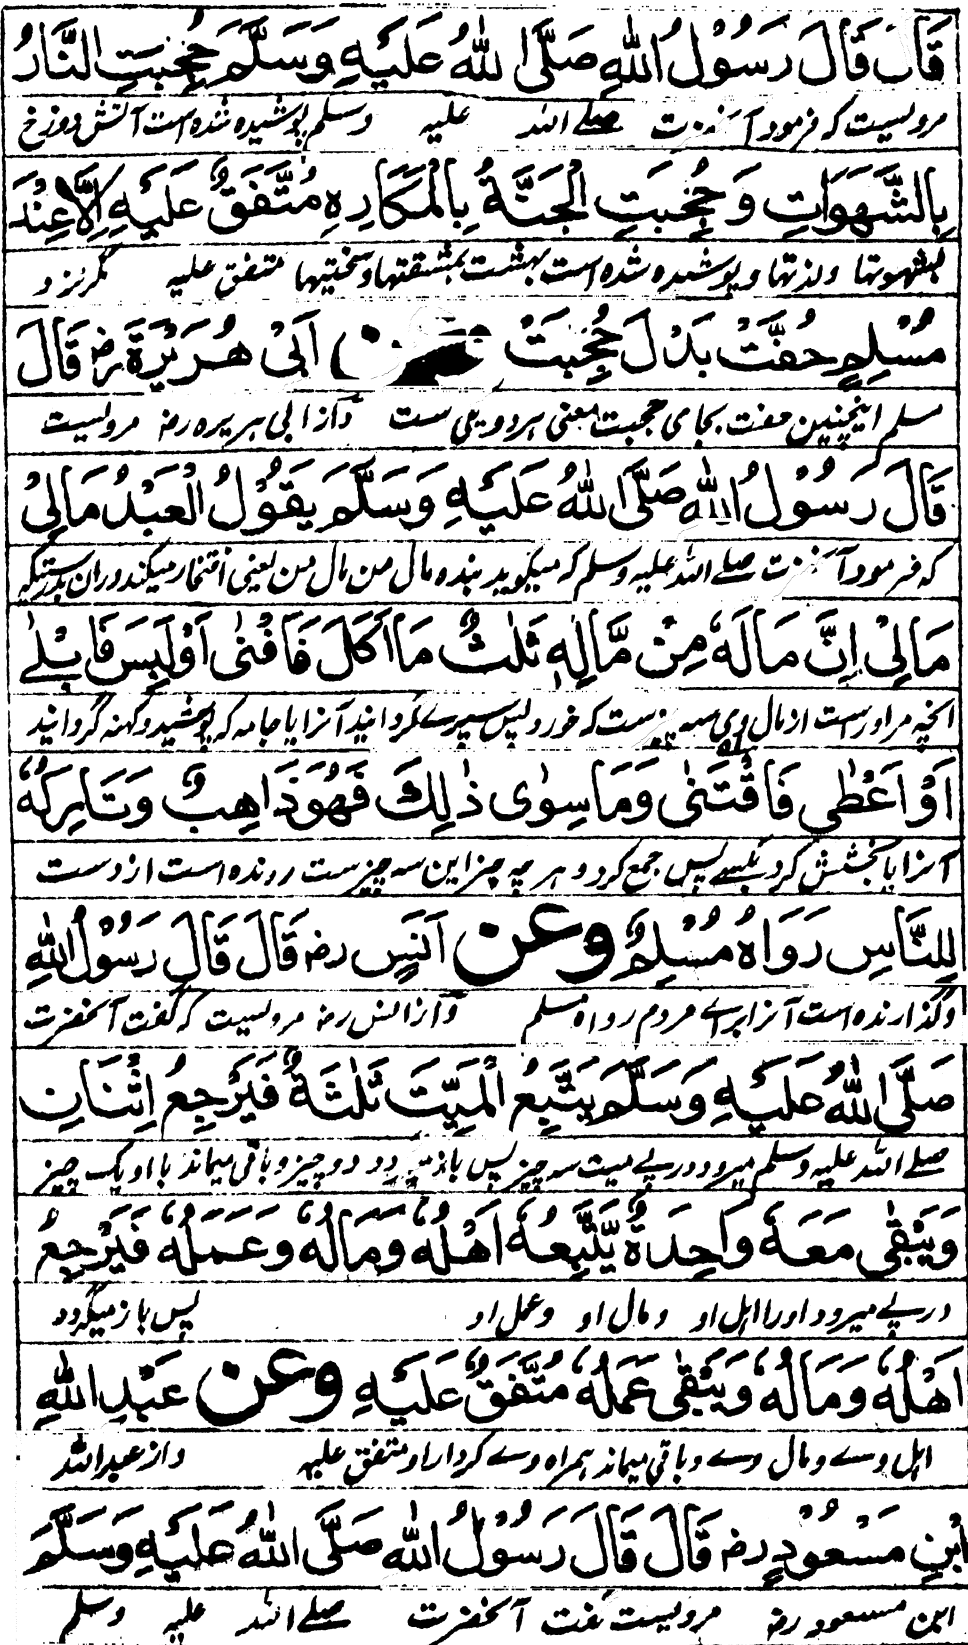 قَالَ قَالَ رَسُوْلُ اللهِ صَلَّى اللهُ عَلَيْهِ وَسَلَّمَ حُجِبَتِ النَّارُ
مرویست که فرمود آنحضرت صلے الله علیه وسلم پوشیده شده است آتش دوزخ
بِالشَّهَوَاتِ وَحُجِبَتِ الْجَنَّةُ بِالْمَكَارِهِ مُتَّفَقٌ عَلَيْهِ اِلَّا عِنْدَ
بشهوتها ولذتها وپوشیده شده است بهشت بمشقتها وسختیها متفق علیه مگر نزد
مُسْلِمٍ حُفَّتْ بَدَلَ حُجِبَتْ اَبِيْ هُرَيْرَةَ رض قَالَ
مسلم اینچنین حفت بجای حجبت معنی هردو یکی ست وآز ابی هریره رض مرویست
قَالَ رَسُوْلُ اللهِ صَلَّى اللهُ عَلَيْهِ وَسَلَّمَ يَقُوْلُ الْعَبْدُ مَالِيْ
که فرمود آنحضرت صلے الله علیه وسلم که میگوید بنده مال من مال من یعنی افتخار میکند وران بدرستیکه
مَالِيْ اِنَّ مَالَهٗ مِنْ مَّالِهٖ ثَلٰثٌ مَا اَكَلَ فَاَفْنٰى اَوْ لَبِسَ فَاَبْلٰے
انچه مراوراست از مال وی سه چیزست که خورد پس سپرے گردانید آنرا یا جامه که پوشید وکهنه گردانید
اَوْ اَعْطٰى فَاقْتَنٰى وَمَا سِوٰى ذٰلِكَ فَهُوَ ذَاهِبٌ وَتَارِكُهٗ
آنرا یا بخشش کرد بکسے پس جمع کرد و هر چه جز این سه چیزست رونده است از دست
لِلنَّاسِ رَوَاهُ مُسْلِمٌ وعن اَنَسٍ رض قَالَ قَالَ رَسُوْلُ اللهِ
وگذارنده است آنرا برای مردم رواه مسلم وآز انس رض مرویست که گفت آنحضرت
صَلَّى اللهُ عَلَيْهِ وَسَلَّمَ يَتْبَعُ الْمَيِّتَ ثَلٰثَةٌ فَيَرْجِعُ اِثْنَانِ
صلے الله علیه وسلم میرود درپے میت سه چیز پس باز میگردد دو چیز وباقی میماند با او یک چیز
وَيَبْقٰى مَعَهٗ وَاحِدَةٌ يَتْبَعُهٗ اَهْلُهٗ وَمَالُهٗ وَعَمَلُهٗ فَيَرْجِعُ
درپے میرود اورا اهل او ومال او وعمل او پس باز میگردد
اَهْلُهٗ وَمَالُهٗ وَيَبْقٰى عَمَلُهٗ مُتَّفَقٌ عَلَيْهِ وعن عَبْدِ اللهِ
اهل وے ومال وے وباقی میماند همراه وے کردار او متفق علیه واز عبدالله
ابْنِ مَسْعُوْدٍ رض قَالَ قَالَ رَسُوْلُ اللهِ صَلَّى اللهُ عَلَيْهِ وَسَلَّمَ
ابن مسعود رض مرویست گفت آنحضرت صلے الله علیه وسلم